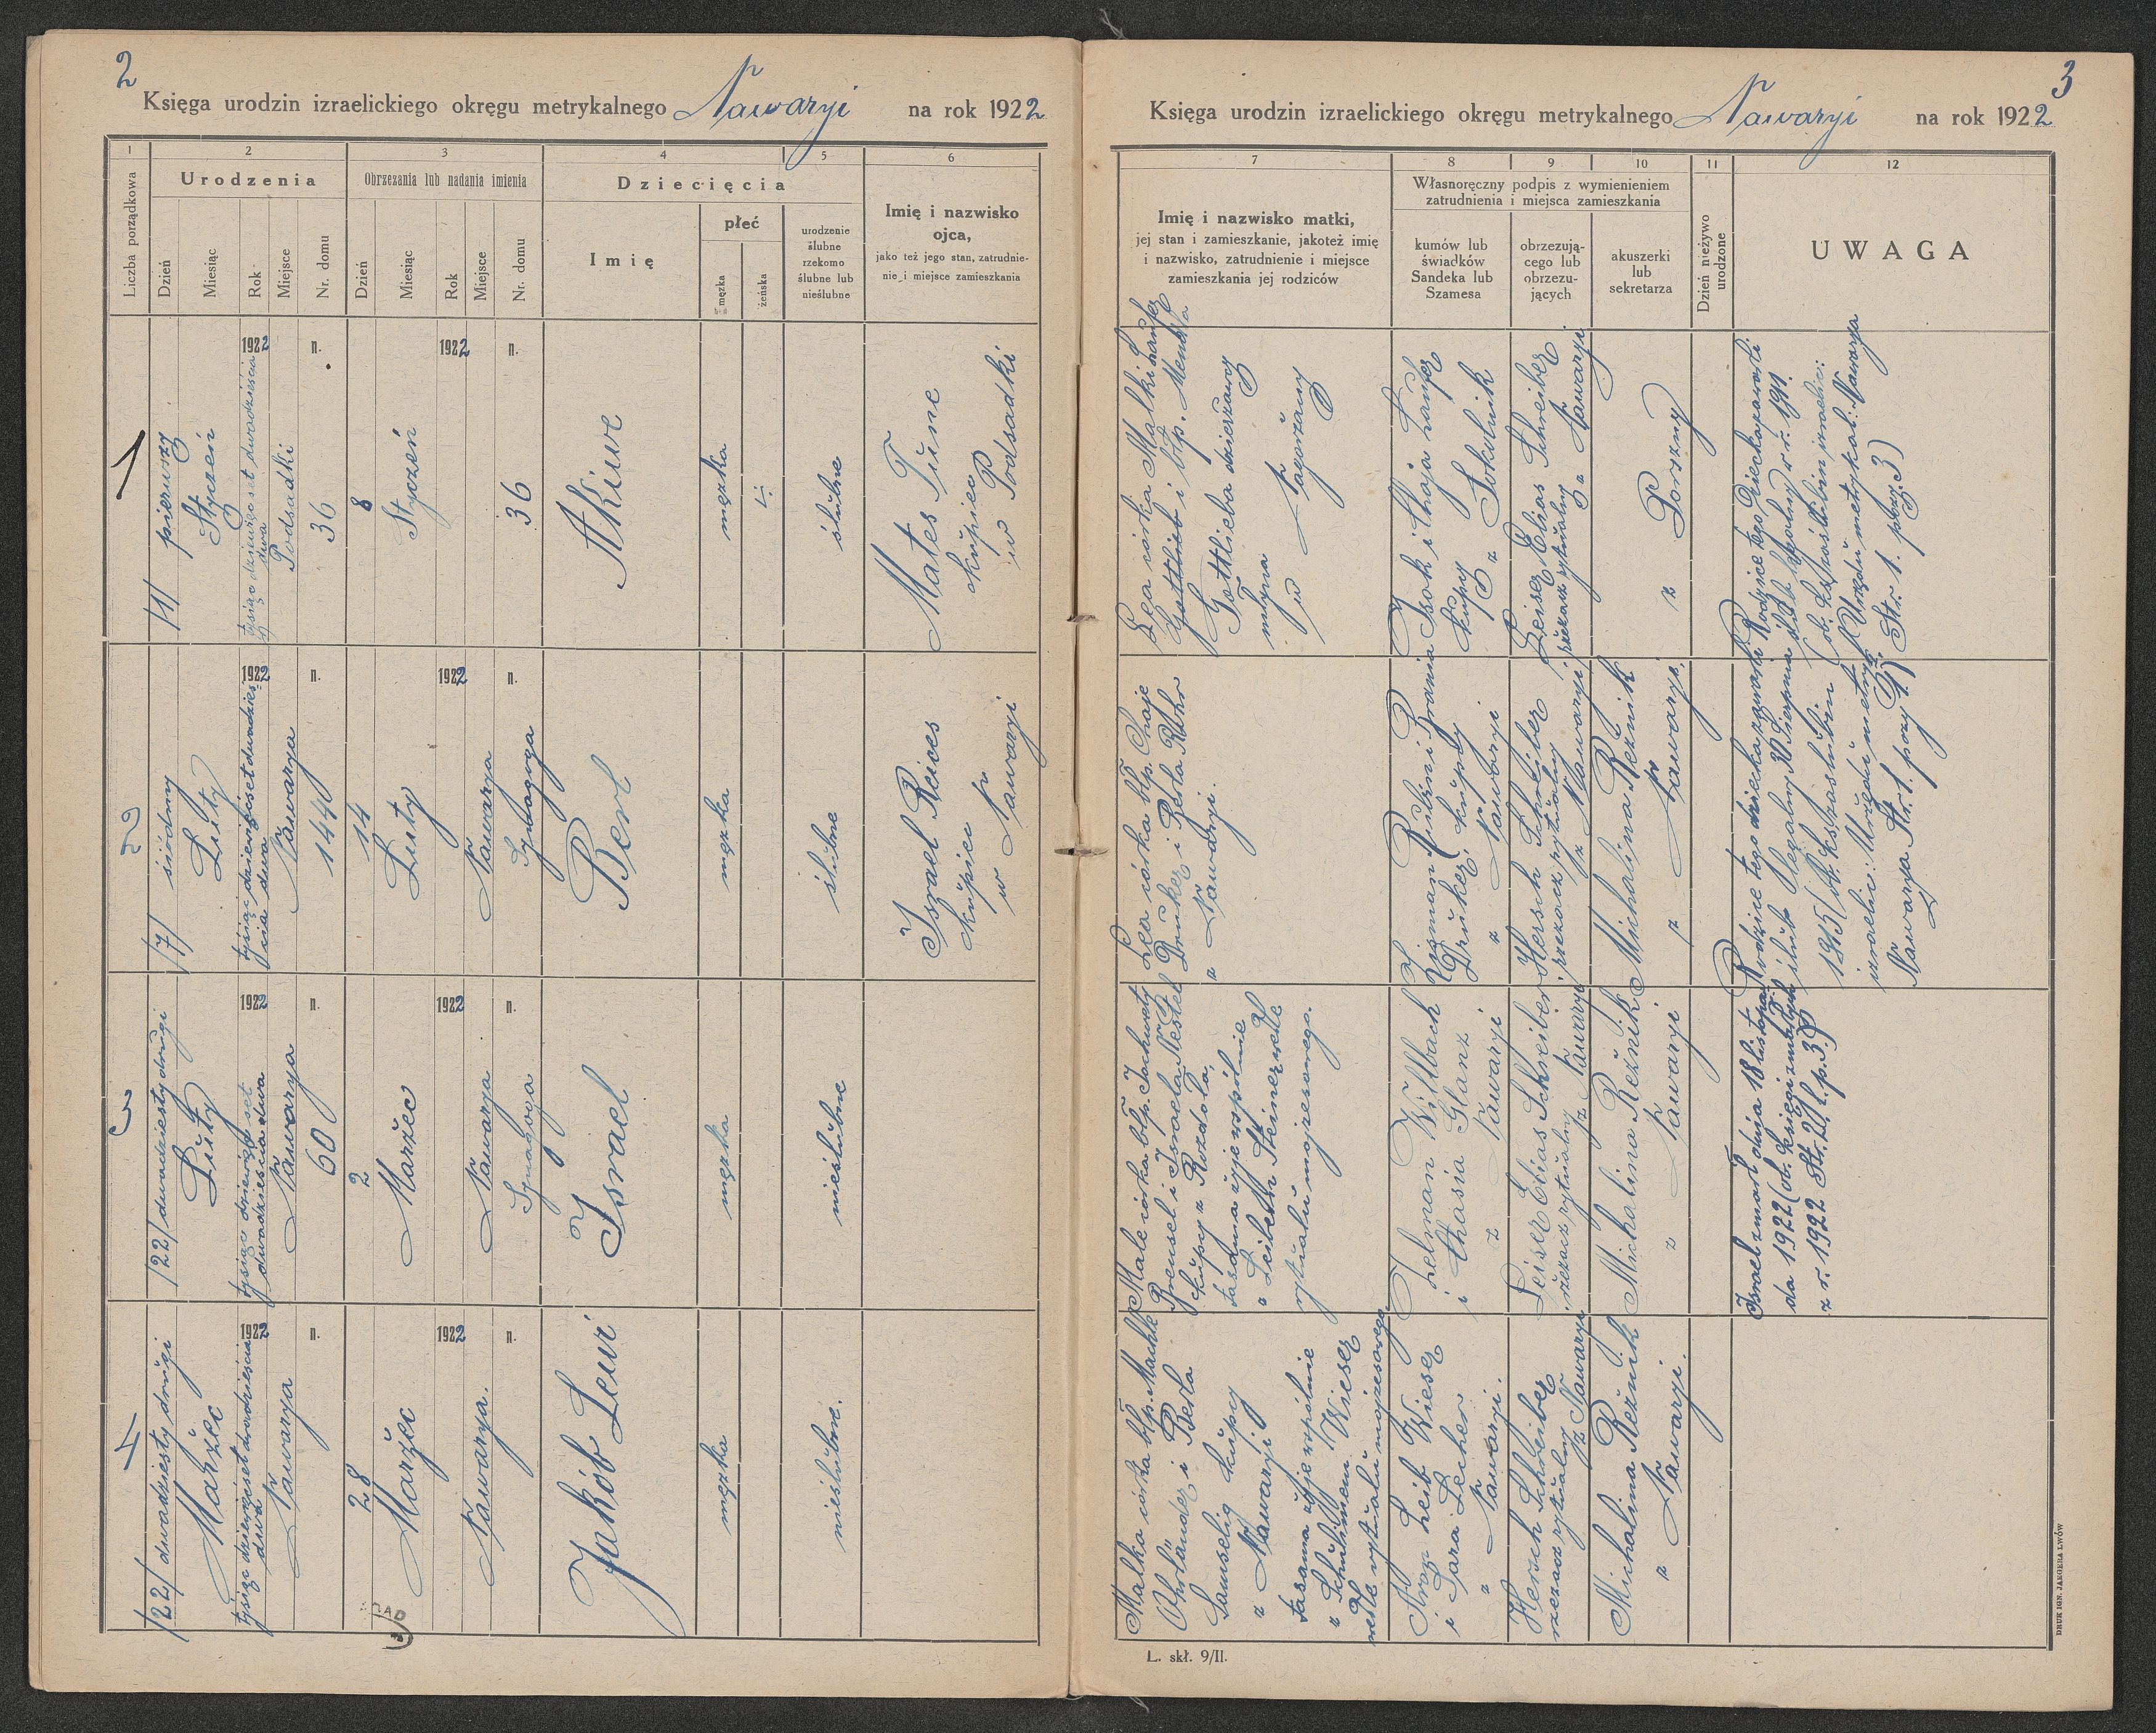 2
Księga urodzin izraelickiego okręgu metrykalnego Nawaryi na rok 1922
1 2 3 4 5 6
Liczba porządkowa
Urodzenia
Obrzezania lub nadania imienia
Dziecięcia
Imię i nazwisko
ojca,
jako też jego stan, zatrudnie-
nie i miejsce zamieszkania
Dzień
Miesiąc
Rok
Miejsce
Nr. domu
Dzień
Miesiąc
Rok
Miejsce
Nr. domu
Imię
płeć
męzka
żeńska
urodzenie
ślubne
rzekomo
ślubne lub
nieślubne
1
/1/ pierwszy
Styczeń
1922
tysiąc dziewięćset dwadzieścia
dwa
Podsadki
n.
36
8
Styczeń
1922
n.
36
Akiwe
męzka
ślubne
Mates Tune
kupiec
w Podsadki
2
/7/ siódmy
Luty
1922
tysiąc dziewięćset dwadzieś
cia dwa
Nawarya
n.
144
14
Luty
1922
Nawarya
n.
Synagoga
Berl
męzka
ślubne
Israel Reices
kupiec
w Nawaryi
3
/22/ dwudziesty drugi
Luty
1922
tysiąc dziewięćset
dwadzieścia dwa
Nawarya
n.
60
2
Marzec
1922
Nawarya
n.
Synagoga
Israel
męzka
nieślubne
4
/22/ dwudziesty drugi
Marzec
1922
tysiąc dziewięćset dwadzieścia
dwa
Nawarya
n.
28
Marzec
1922
Nawarya.
n.
Jakób Lewi
męzka
nieślubne.
3
Księga urodzin izraelickiego okręgu metrykalnego Nawaryi na rok 1922
7 8 9 10 11 12
Imię i nazwisko matki,
jej stan i zamieszkanie, jakoteż imię
i nazwisko, zatrudnienie i miejsce
zamieszkania jej rodziców
Własnoręczny podpis z wymienieniem
zatrudnienia i miejsca zamieszkania
kumów lub
świadków
Sandeka lub
Szamesa
obrzezują-
cego lub
obrzezu-
jących
akuszerki
lub
sekretarza
Dzień nieżywo
urodzone
UWAGA
Lea córka Malki
i błp. Mendla
Gottlieba dzierżawcy
młyna
w Nagorzany
Isok i Chaja
kupcy z Sokolnik
Leiser Elias Schreiber
rzezacz rytualny z Nawaryi
z Porszny
Rodzice tego dziecka zawarli
ślub legalny r. 1911.
(Urzędu metykal: Nawarya
Str. 1. poz. 3)
Lea córka błp. Chaje
Druker i Berla Rohr
z Nawaryi.
Zisman Rubin i Brania
Druker kupcy
z Nawaryi
Hersch Schreiber
rzezacz rytualny
z Nawaryi
Michalina Reźnik
z Nawaryi.
Rodzice tego dziecka zawarli
ślub legalny 30 Sierpnia
izraelic: Urzędu metryk.
Nawarya Str. 1. pozy 2.)
Male córka błp. Jochwety
Bremsel i Israela Nestel
kupcy z Rozdoła,
tasama żyje wspólnie
z Leibem Steiner wedle
rytuału mojżeszowego.
Zelman Wildbach
i Chasia Glanz
z Nawaryi
Leiser Elias Schreiber
rzezacz rytualny
z Nawaryi
Michalina Reźnik
z Nawaryi
Israel zmarł dnia 18 listopa
da 1922 (ob. księgi zmarłych
z r. 1922 Str. 2. l. p. 3.)
Malka córka błp. Machle
Ohrlander i Berla
Samselig kupcy
z Nawaryi
tasama żyje wspólnie
z Schulimem Wieser
wedle rytuału mojżeszowego
Aron Leib Wieser
i Sara Lecher
z Nawaryi.
Hersch Schreiber
rzezacz rytualny
z Nawaryi
Michalina Reźnik
z Nawaryi.
L. skł. 9/II.
DRUK IGN. JAEGERA LWÓW